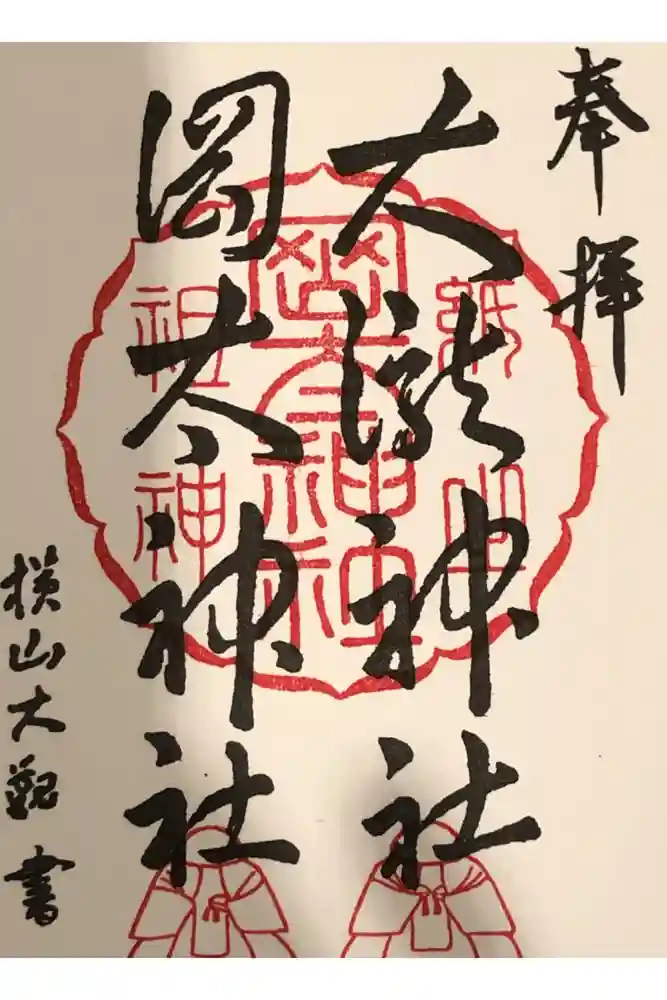 奉拝
大瀧神社
岡太神社
横山大観書
紙
祖神